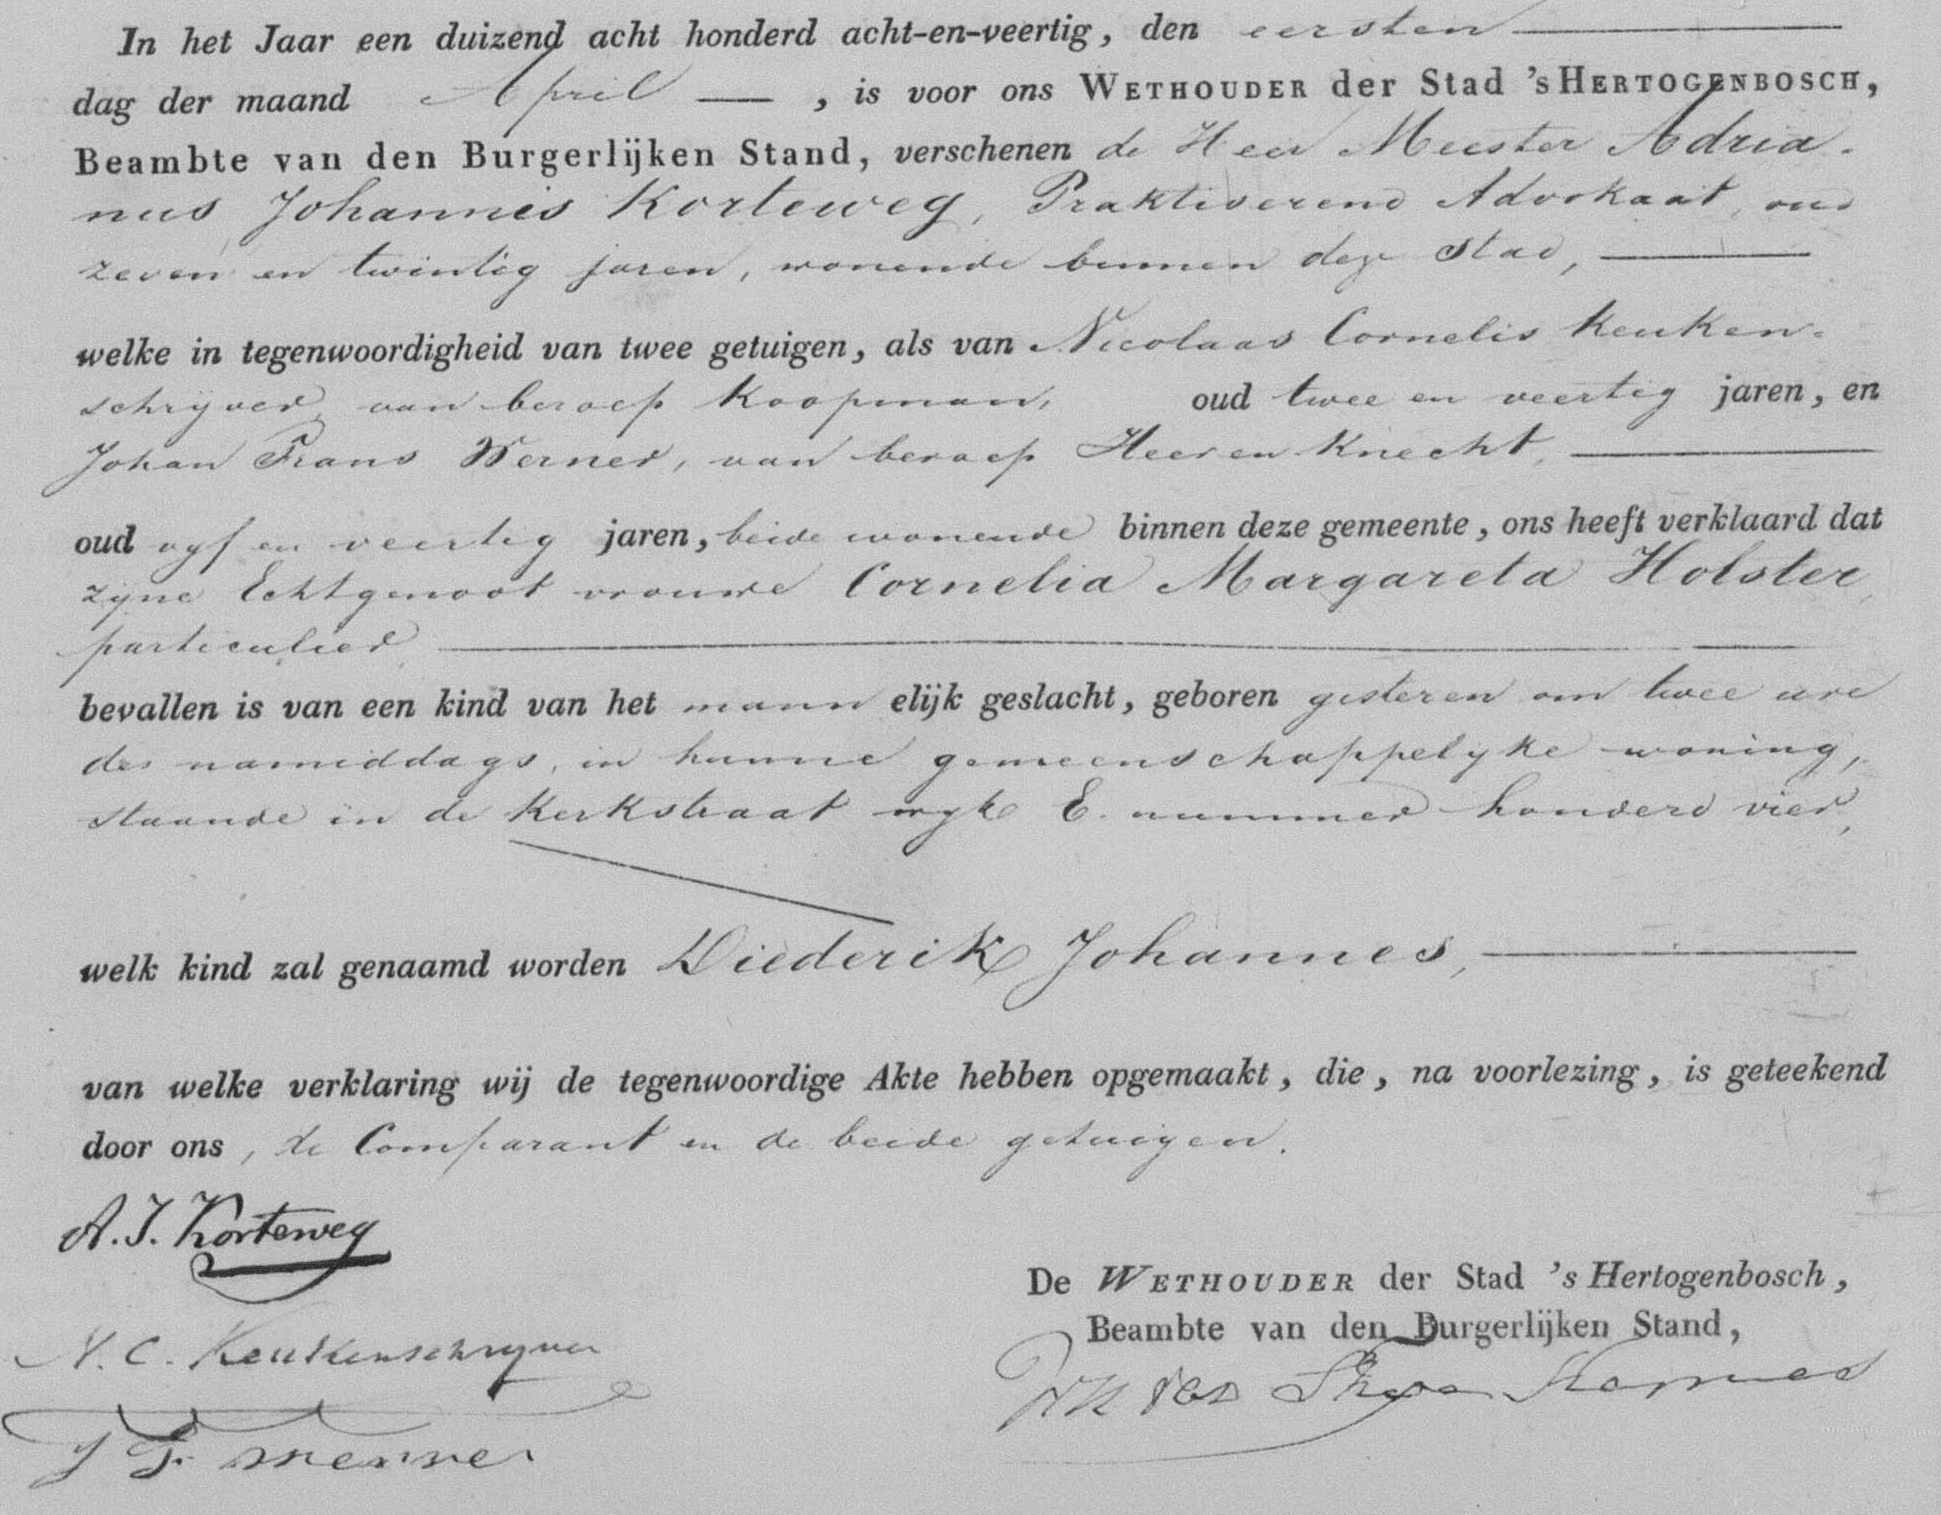 In het Jaar een duizend acht honderd acht-en-veertig, den eersten
dag der maand April, is voor ons WETHOUDER der Stad 's HERTOGENBOSCH,
Beambte van den Burgerlijken Stand, verschenen de Heer Meester Adria-
nus Johannes Korteweg, Praktiserend Advokaat, oud
zeven en twintig jaren, wonende binnen deze stad,
welke in tegenwoordigheid van twee getuigen, als van Nicolaas Cornelis Keuken-
schrijver, van beroep Koopman, oud twee en veertig jaren, en
Johan Frans Werner, van beroep Heeren Knecht,
oud vyf en veertig jaren, beide wonende binnen deze gemeente, ons heeft verklaard dat
zyne Echtgenoot vrouwe Cornelia Margareta Holster,
particulier
bevallen is van een kind van het mannelijk geslacht, geboren gisteren om twee ure
des namiddags, in hunne gemeenschappelyke woning,
staande in de Kerkstraat wyk E. nummer honderd vier,
welk kind zal genaamd worden Diederik Johannes,
van welke verklaring wij de tegenwoordige Akte hebben opgemaakt, die, na voorlezing, is geteekend
door ons, de Comparant en de beide getuigen.
A. J. Korteweg
N. C. Keukenschryver
J F Werner
De WETHOUDER der Stad 's Hertogenbosch,
Beambte van den Burgerlijken Stand,